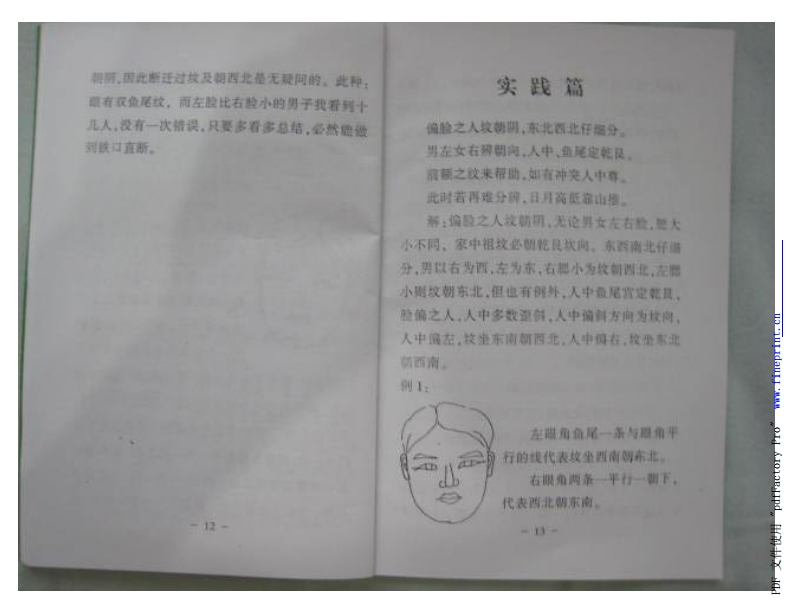 朝阴,因此断迁过坟及朝西北是无疑问的。此种:
眼有双鱼尾纹，而左脸比右脸小的男子我看到十
几人,没有一次错误,只要多看多总结,必然能做
到铁口直断。
- 12 -
实践篇
偏脸之人坟朝阴,东北西北仔细分。
男左女右辨朝向,人中、鱼尾定乾艮。
前额之纹来帮助,如有冲突人中尊。
此时若再难分辨,日月高低靠山推。
解:偏脸之人坟朝阴,无论男女左右脸,腮大
小不同，家中祖坟必朝乾艮坎向。东西南北仔细
分,男以右为西,左为东,右腮小为坟朝西北,左腮
小则坟朝东北,但也有例外,人中鱼尾宫定乾艮,
脸偏之人,人中多数歪斜,人中偏斜方向为坟向,
人中偏左,坟坐东南朝西北,人中偏右,坟坐东北
朝西南。
例1:
左眼角鱼尾一条与眼角平
行的线代表坟坐西南朝东北。
右眼角两条一平行一朝下,
代表西北朝东南。
- 13 -
PDF 文件使用 "pdfFactory Pro" www.fineprint.cn